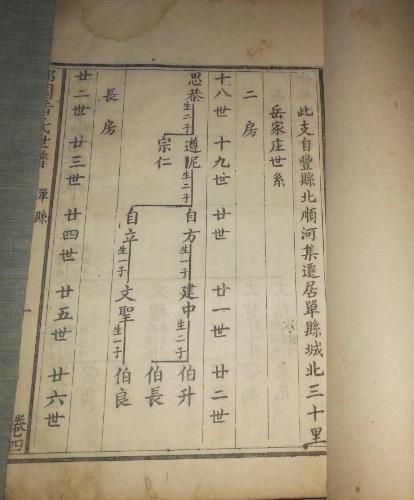 此支自豐縣北順河集遷居單縣城北三十里
岳家庄世系
二房
十八世 十九世 廿世 廿一世 廿二世
思恭 生二子 遵尼 生二子 自方 生一子 建中 生二子 伯升
伯長
宗仁
自立 生一子 文聖 生一子 伯良
長房
廿二世 廿三世 廿四世 廿五世 廿六世
岳氏世譜 單縣 卷七四